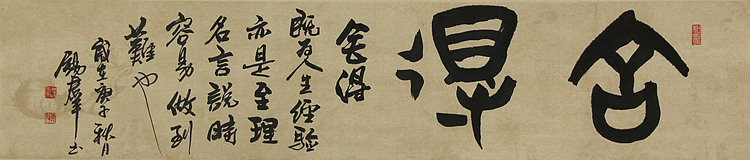 舍得
舍得
既为人生經验
亦是至理
名言說時
容易做到
難也
歲在庚子秋月
錫羣书